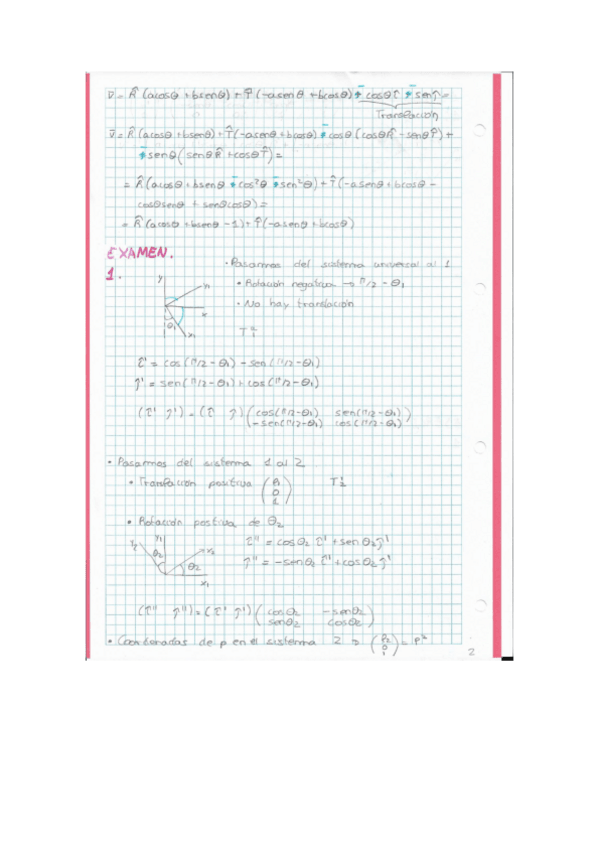 v̄ = R̂ (acosθ + bsenθ) + T̂ (-asenθ + bcosθ) - cosθ î - sen ĵ =
Translación
v̄ = R̂ (acosθ + bsenθ) + T̂ (-asenθ + bcosθ) - cosθ (cosθ R̂ - senθ T̂) +
- senθ (senθ R̂ + cosθ T̂) =
= R̂ (acosθ + bsenθ - cos²θ - sen²θ) + T̂ (-asenθ + bcosθ -
cosθsenθ + senθcosθ) =
= R̂ (acosθ + bsenθ - 1) + T̂ (-asenθ + bcosθ)
EXAMEN.
1.
• Pasarmos del sistema universal al 1
• Rotación negativa → π/2 - θ₁
• No hay translación
y
x
θ₁
x₁
î' = cos(π/2 - θ₁) - sen(π/2 - θ₁)
ĵ' = sen(π/2 - θ₁) + cos(π/2 - θ₁)
(î' ĵ') = (î ĵ) ( cos(π/2-θ₁) sen(π/2-θ₁) )
( -sen(π/2-θ₁) cos(π/2-θ₁) )
• Pasarmos del sistema 1 al 2
• Translación positiva ( A 0 1 )
• Rotación positiva de θ₂
y₂ y₁ x₂
θ₂ θ₂
x₁
î'' = cosθ₂ î' + senθ₂ ĵ'
ĵ'' = -senθ₂ î' + cosθ₂ ĵ'
(î'' ĵ'') = (î' ĵ') ( cosθ₂ -senθ₂ )
( senθ₂ cosθ₂ )
• Coordenadas de p en el sistema 2 ⇒ ( P₂ 0 1 ) = P²
2